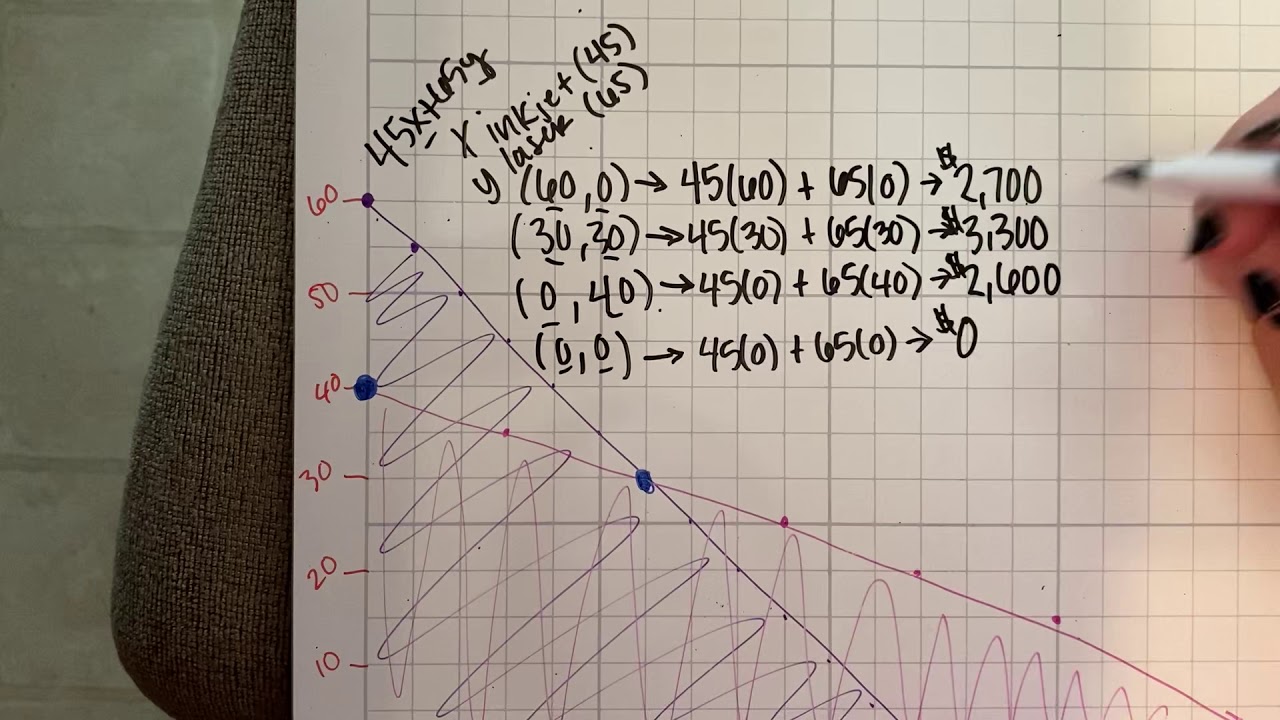 45x+65y
x inkjet (45)
y laser (65)
(60,0) → 45(60) + 65(0) → $2,700
(30,30) → 45(30) + 65(30) → $3,300
(0,40) → 45(0) + 65(40) → $2,600
(0,0) → 45(0) + 65(0) → $0
60
50
40
30
20
10